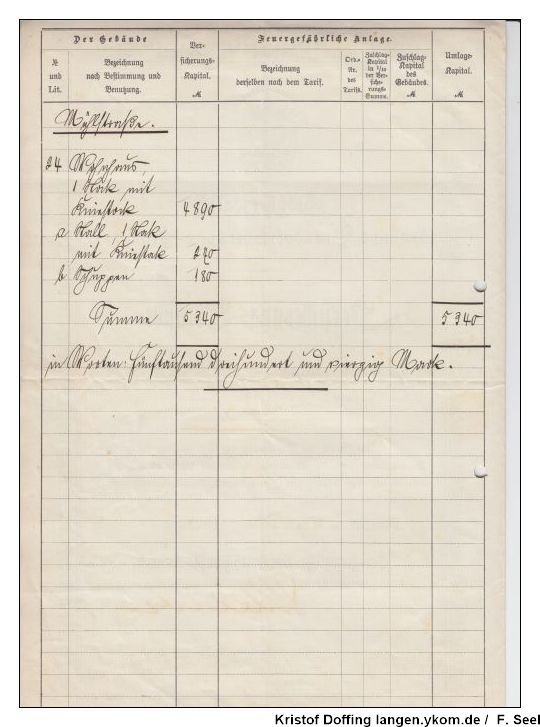 Der Gebäude
Ver-
sicherungs-
Kapital.
ℳ
Feuergefährliche Anlage.
№
und
Lit.
Bezeichnung
nach Bestimmung und
Benutzung.
Bezeichnung
derselben nach dem Tarif.
Ord.-
Nr.
des
Tarifs.
Zuschlag-
Kapital
in 1/10
der Ver-
siche-
rungs-
Summe.
Zuschlag-
Kapital
des
Gebäudes.
ℳ
Umlage-
Kapital.
ℳ
Mühlstraße.
24 Wohnhaus,
1 Stock mit
Kniestock 4890
a Stall, 1 Stock
mit Kniestock 270
b Schuppen 180
Summe 5340 5340
in Worten: Fünftausend dreihundert und vierzig Mark.
Kristof Doffing langen.ykom.de / F. Seel